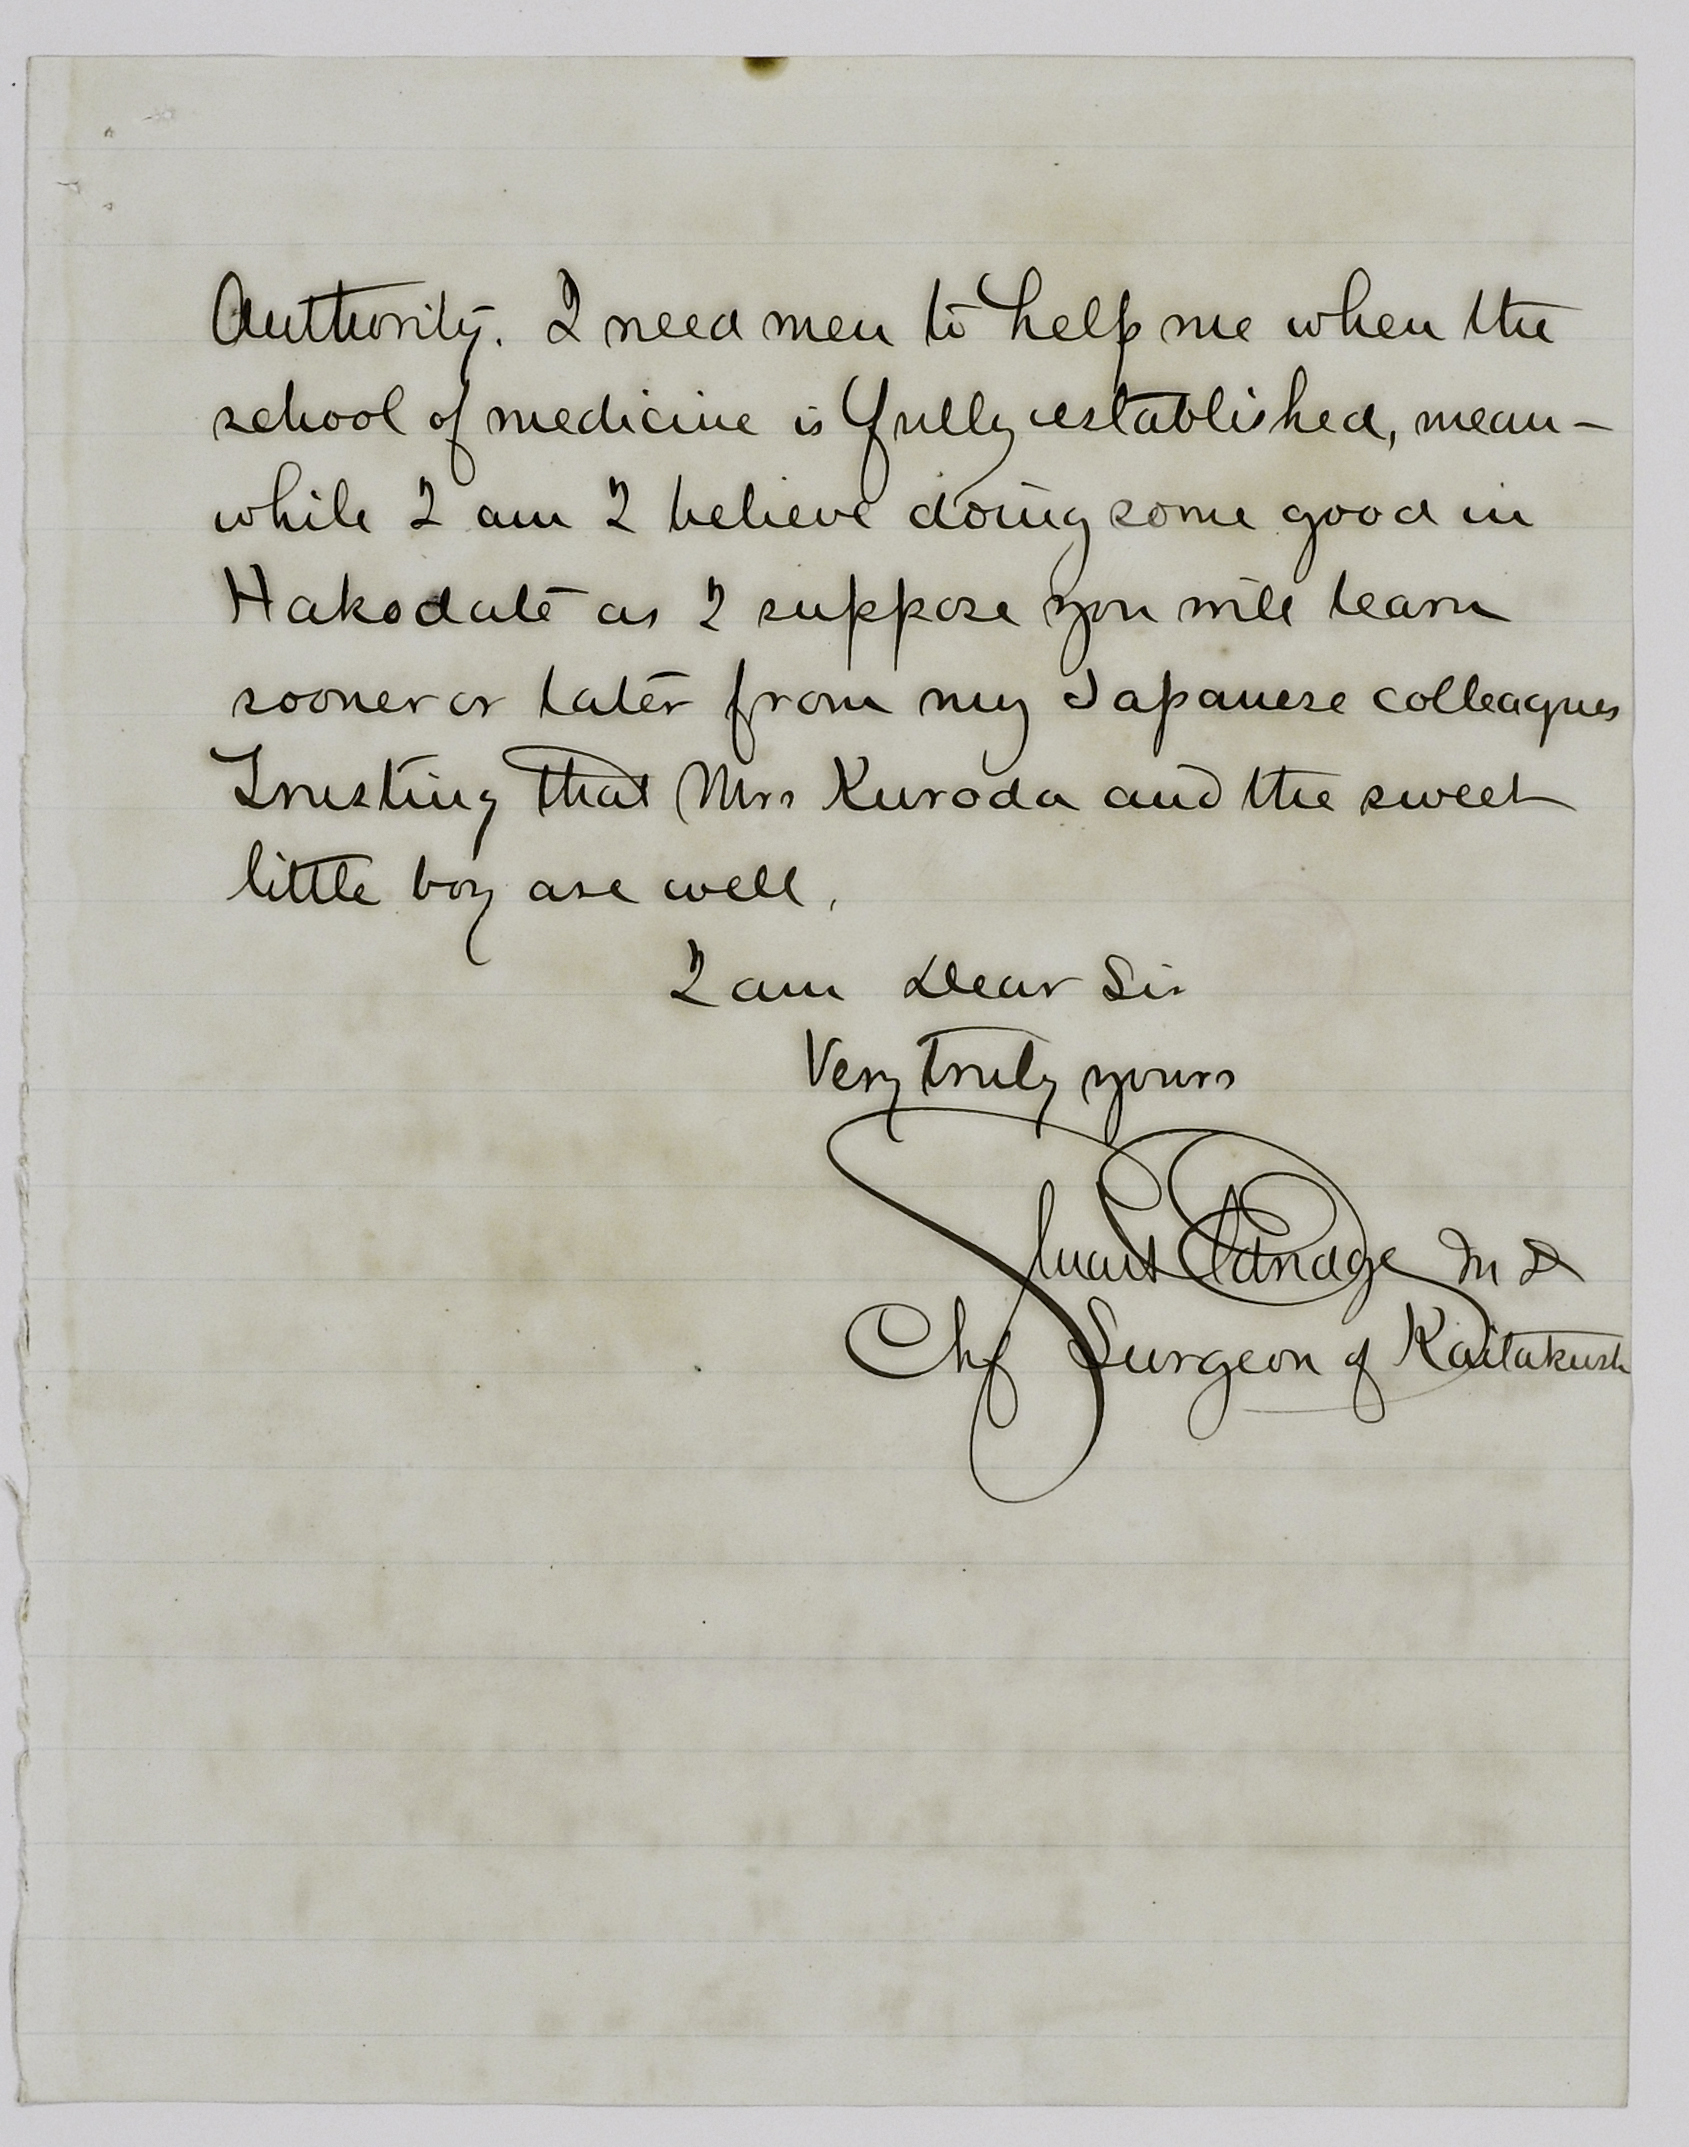 Authority. I need men to help me when the
school of medicine is fully established, mean-
while I am I believe doing some good in
Hakodate as I suppose you will learn
sooner or later from my Japanese colleagues
Trusting that Mrs Kuroda and the sweet
little boy are well.
I am Dear Sir
Very truly yours
Stuart Eldridge M D
Chf Surgeon of Kaitakushi